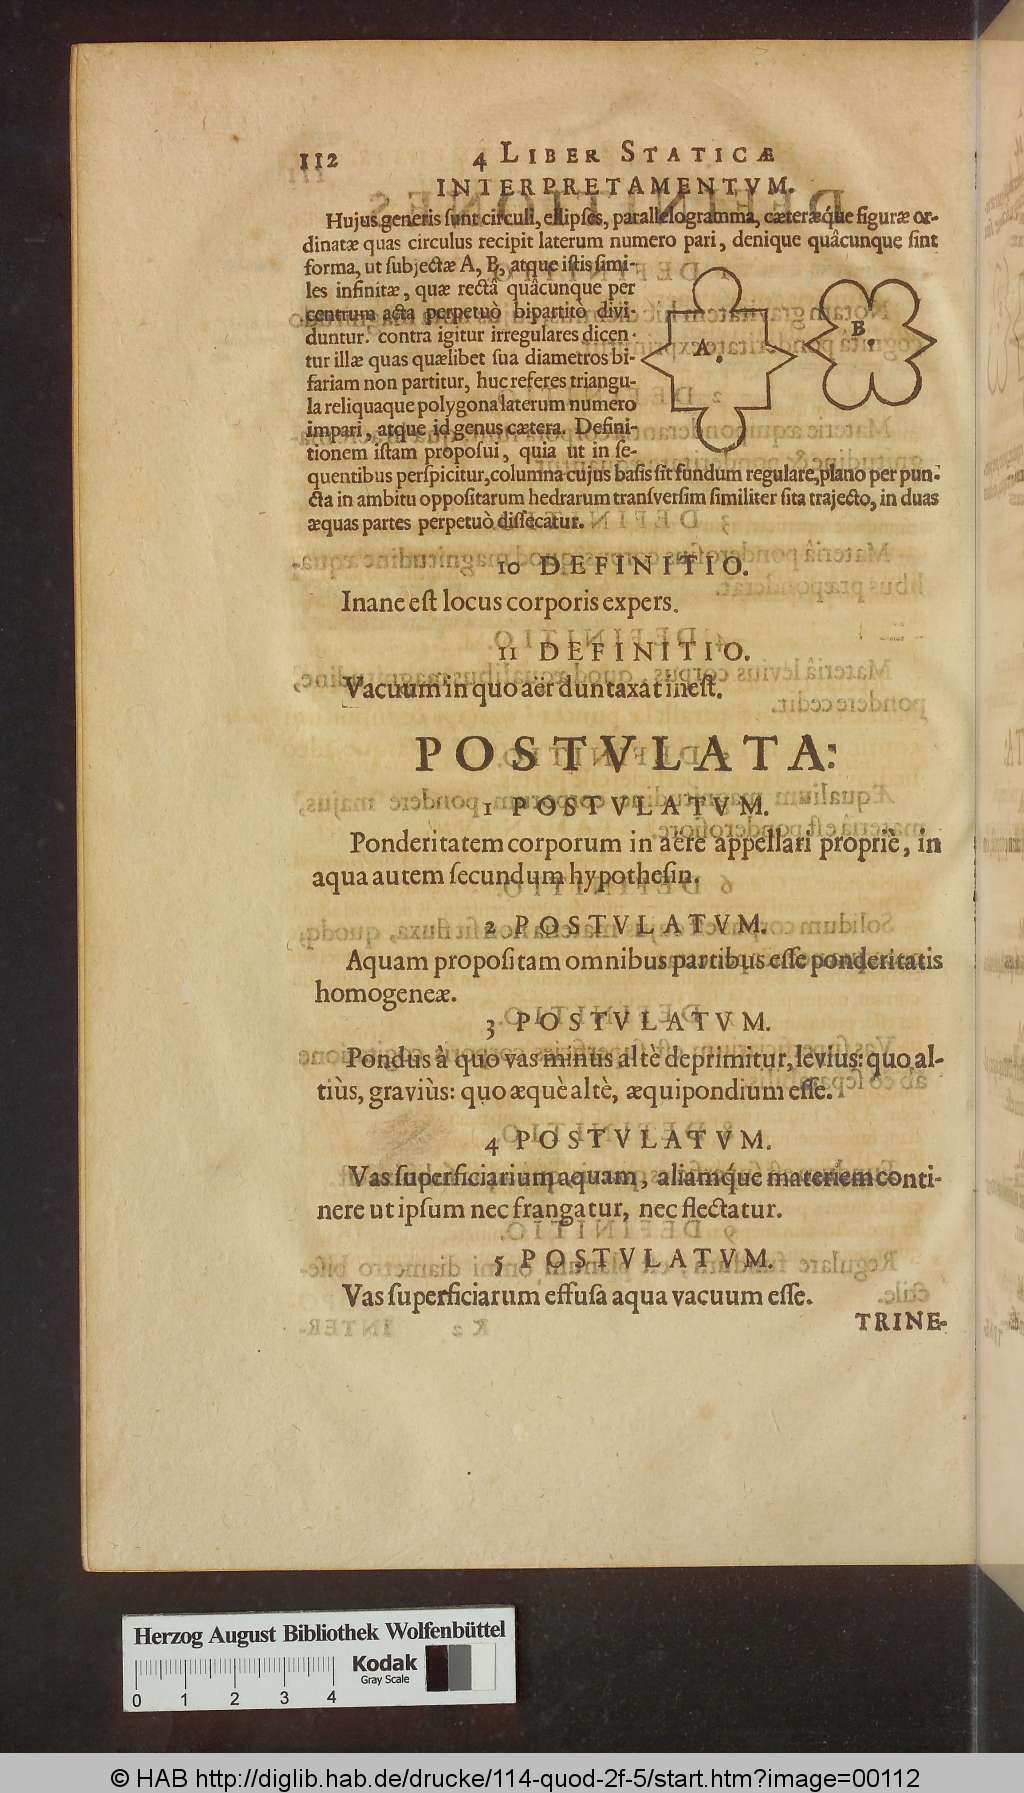 112 4 LIBER STATICÆ
INTERPRETAMENTVM.
Hujus generis ſunt circuli, ellipſes, parallelogramma, cæteræq́ue figuræ or-
dinatæ quas circulus recipit laterum numero pari, denique quâcunque ſint
forma, ut ſubjectæ A, B, atque iſtis ſimi-
les infinitæ, quæ rectâ quâcunque per
centrum acta perpetuò bipartitò divi-
duntur. contra igitur irregulares dicen-
tur illæ quas quælibet ſua diametros bi-
fariam non partitur, huc referes triangu-
la reliquaque polygona laterum numero
impari, atque id genus cætera. Defini-
tionem iſtam propoſui, quia ut in ſe-
quentibus perſpicitur, columna cujus baſis ſit fundum regulare, plano per pun-
cta in ambitu oppoſitarum hedrarum tranſverſim ſimiliter ſita trajecto, in duas
æquas partes perpetuò diſſecatur.
A
B
10 DEFINITIO.
Inane eſt locus corporis expers.
11 DEFINITIO.
Vacuum in quo aër duntaxat ineſt.
POSTVLATA:
1 POSTVLATVM.
Ponderitatem corporum in aëre appellari propriè, in
aqua autem ſecundum hypotheſin.
2 POSTVLATVM.
Aquam propoſitam omnibus partibus eſſe ponderitatis
homogeneæ.
3 POSTVLATVM.
Pondus à quo vas minus altè deprimitur, levius: quo al-
tiùs, graviùs: quo æquè altè, æquipondium eſſe.
4 POSTVLATVM.
Vas ſuperficiarium aquam, aliamq́ue materiem conti-
nere ut ipſum nec frangatur, nec flectatur.
5 POSTVLATVM.
Vas ſuperficiarum effuſa aqua vacuum eſſe.
TRINE-
Herzog August Bibliothek Wolfenbüttel
Kodak
Gray Scale
0 1 2 3 4
© HAB http://diglib.hab.de/drucke/114-quod-2f-5/start.htm?image=00112